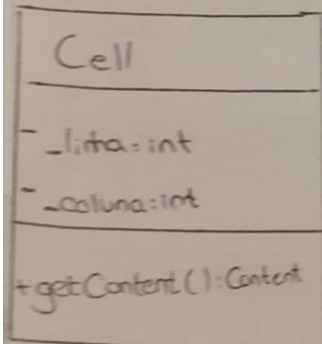 Cell
- _linha: int
- _coluna: int
+ getContent(): Content